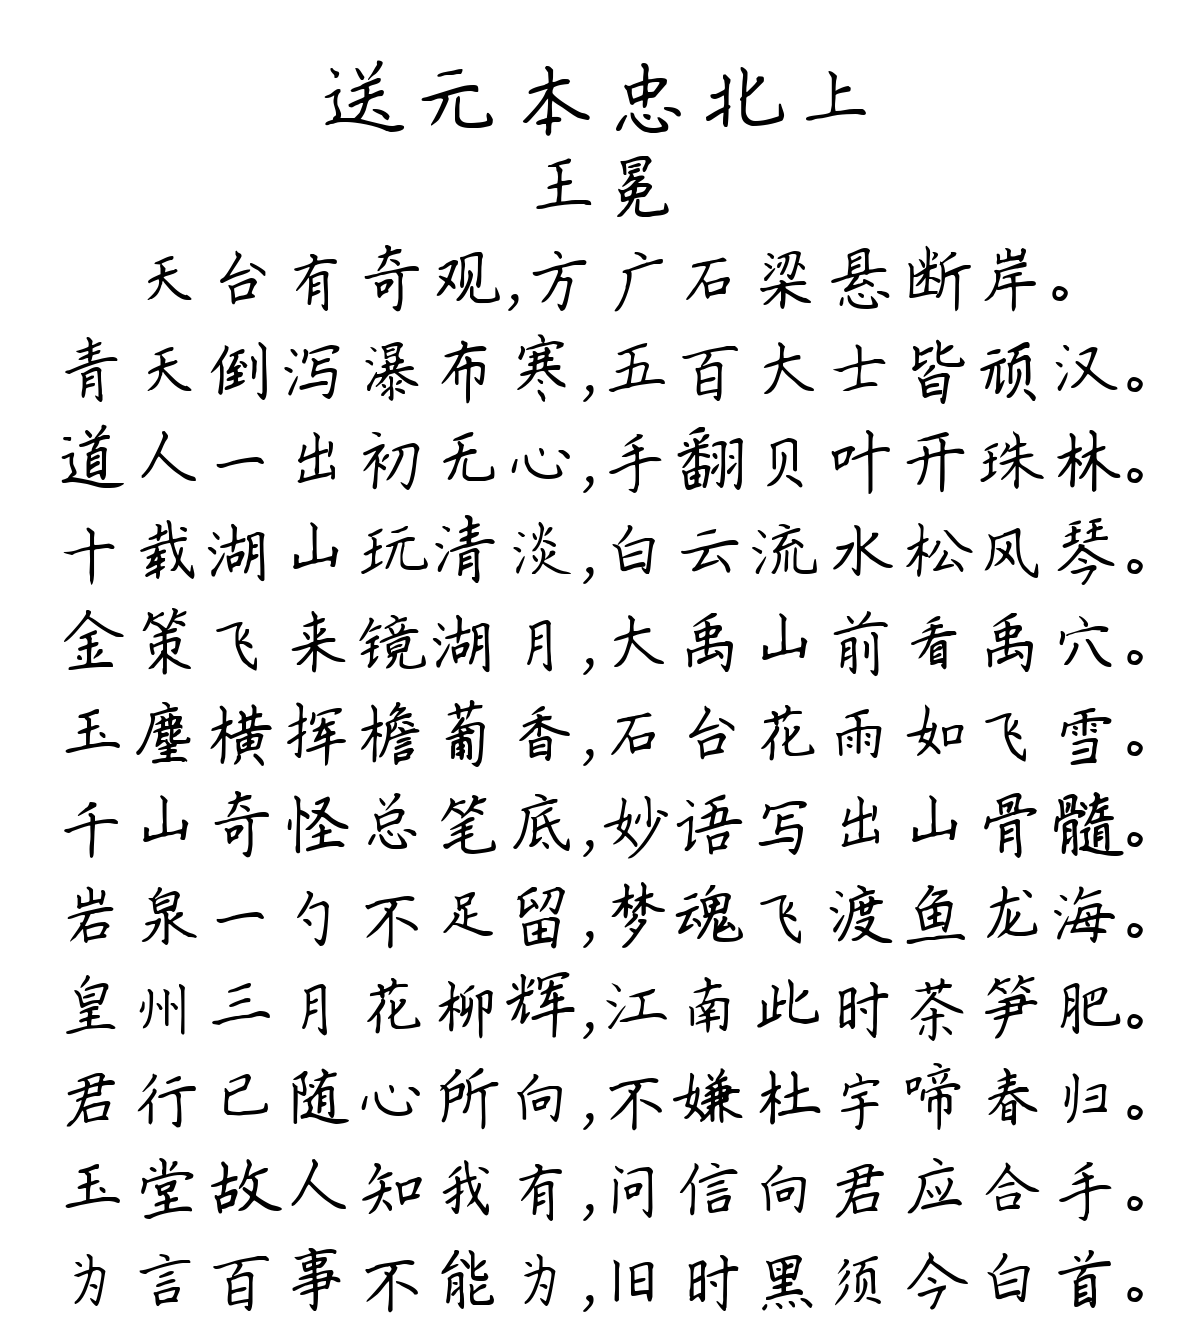 送元本忠北上
王冕
天台有奇观,方广石梁悬断岸。
青天倒泻瀑布寒,五百大士皆顽汉。
道人一出初无心,手翻贝叶开珠林。
十载湖山玩清淡,白云流水松风琴。
金策飞来镜湖月,大禹山前看禹穴。
玉麈横挥檐葡香,石台花雨如飞雪。
千山奇怪总笔底,妙语写出山骨髓。
岩泉一勺不足留,梦魂飞渡鱼龙海。
皇州三月花柳辉,江南此时茶笋肥。
君行已随心所向,不嫌杜宇啼春归。
玉堂故人知我有,问信向君应合手。
为言百事不能为,旧时黑须今白首。